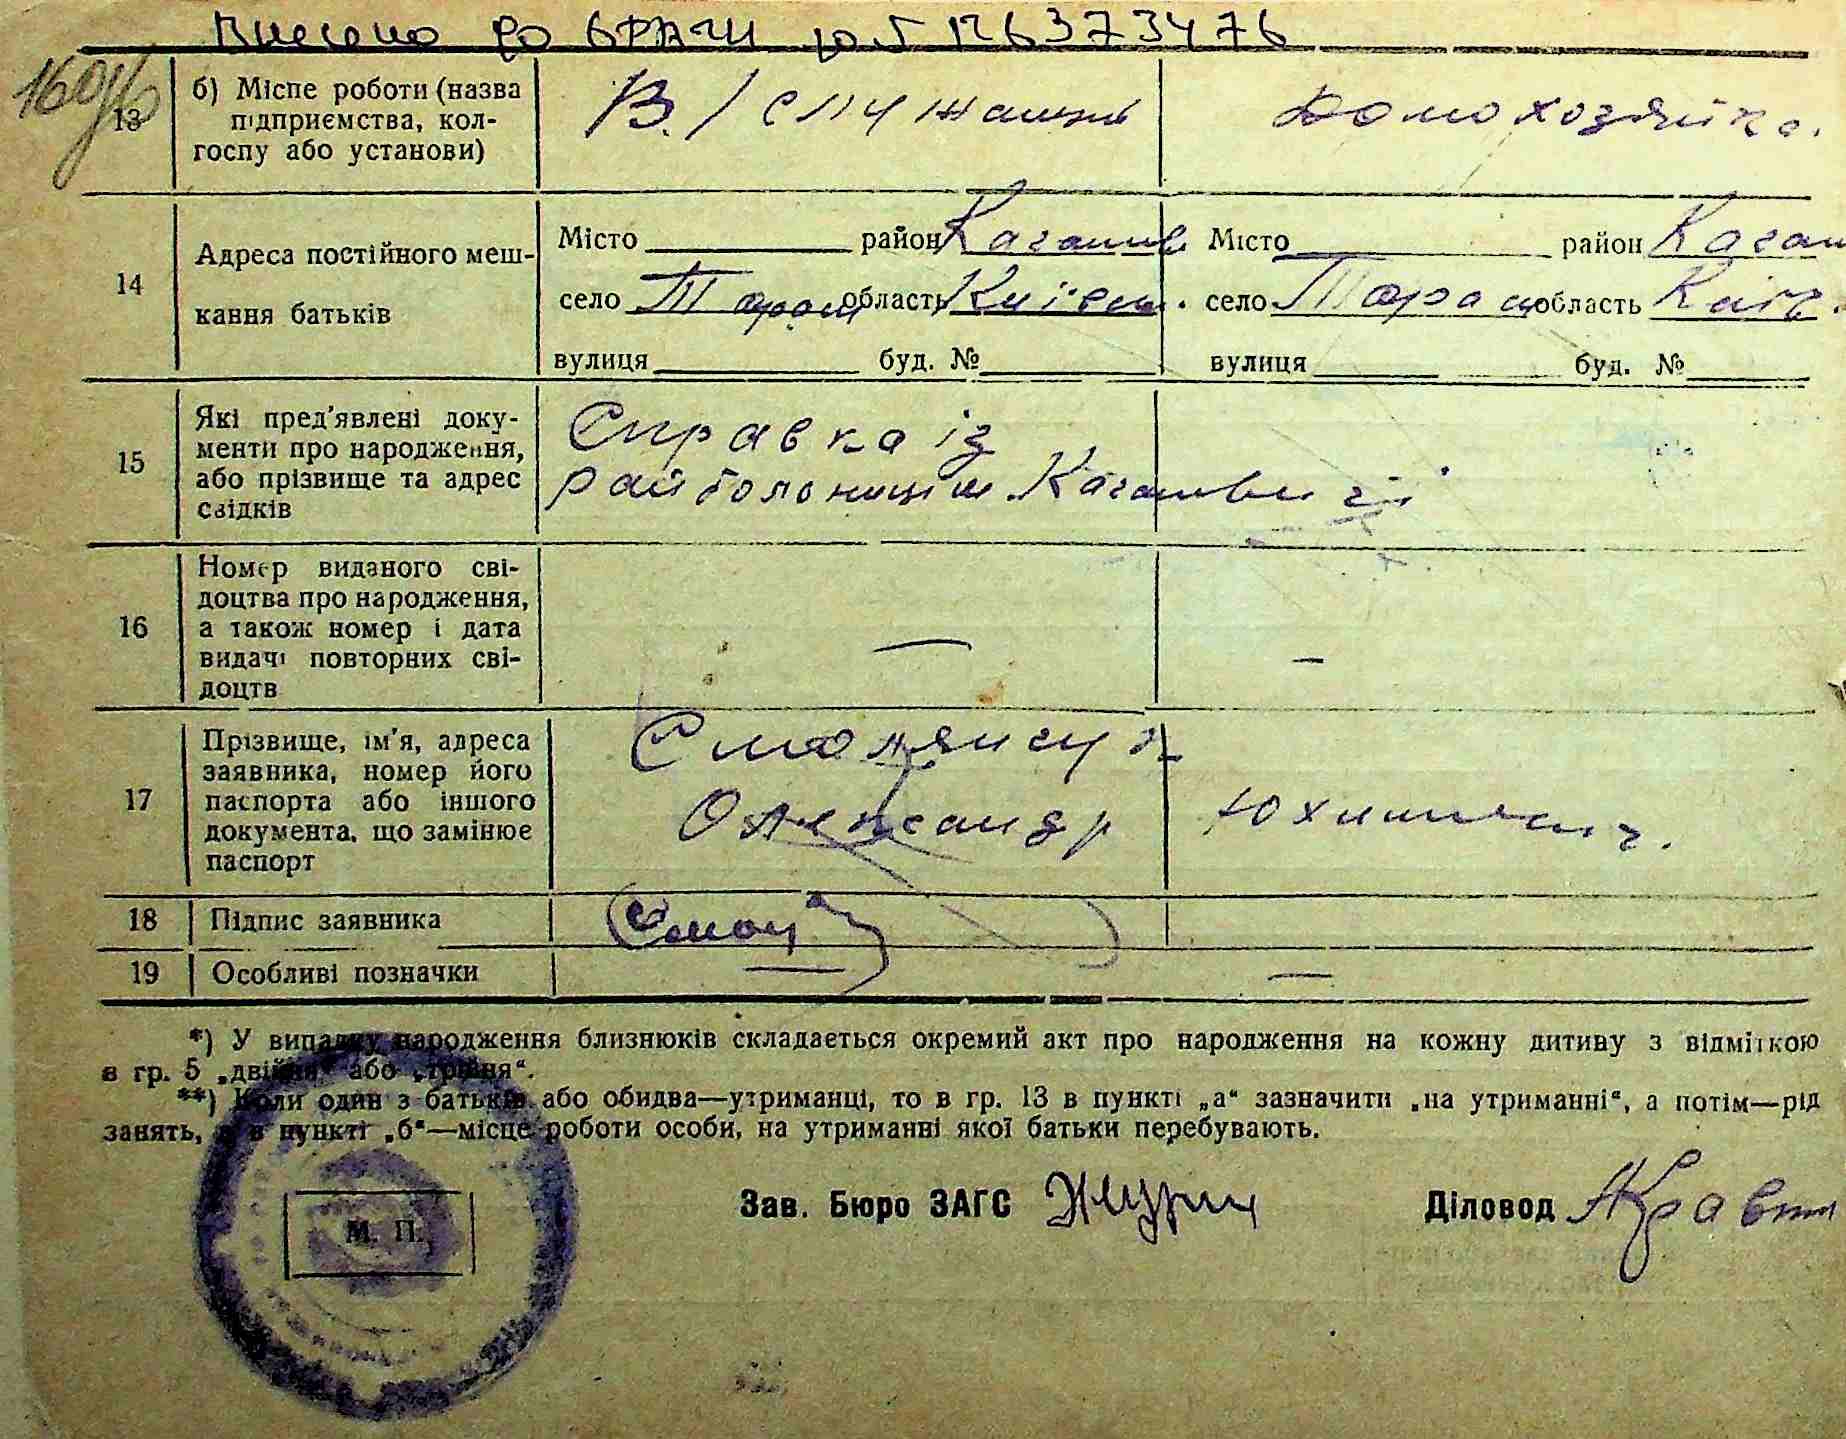 Внесено до ДРАЦС
13
б) Місце роботи (назва підприємства, колгоспу або установи)
В/служащий
Домохозяйка.
14
Адреса постійного мешкання батьків
Місто район Каганов
село Тараси область Київськ.
вулиця буд. №
Місто район Каган
село Тараси область Київ.
вулиця буд. №
15
Які пред'явлені документи про народження, або прізвище та адрес свідків
Справка із
райболониціи Кагановичі
16
Номер виданого свідоцтва про народження, а також номер і дата видачі повторних свідоцтв
—
—
17
Прізвище, ім'я, адреса заявника, номер його паспорта або іншого документа, що замінює паспорт
Олександр Юхимович.
18
Підпис заявника
19
Особливі позначки
—
—
*) У випадку народження близнюків складається окремий акт про народження на кожну дитину з відміткою
в гр. 5 „двійня“ або „трійня“.
**) Коли один з батьків або обидва—утриманці, то в гр. 13 в пункті „а“ зазначити „на утриманні“, а потім—рід
занять, а в пункті „б“—місце роботи особи, на утриманні якої батьки перебувають.
Зав. Бюро ЗАГС
Діловод
М. П.